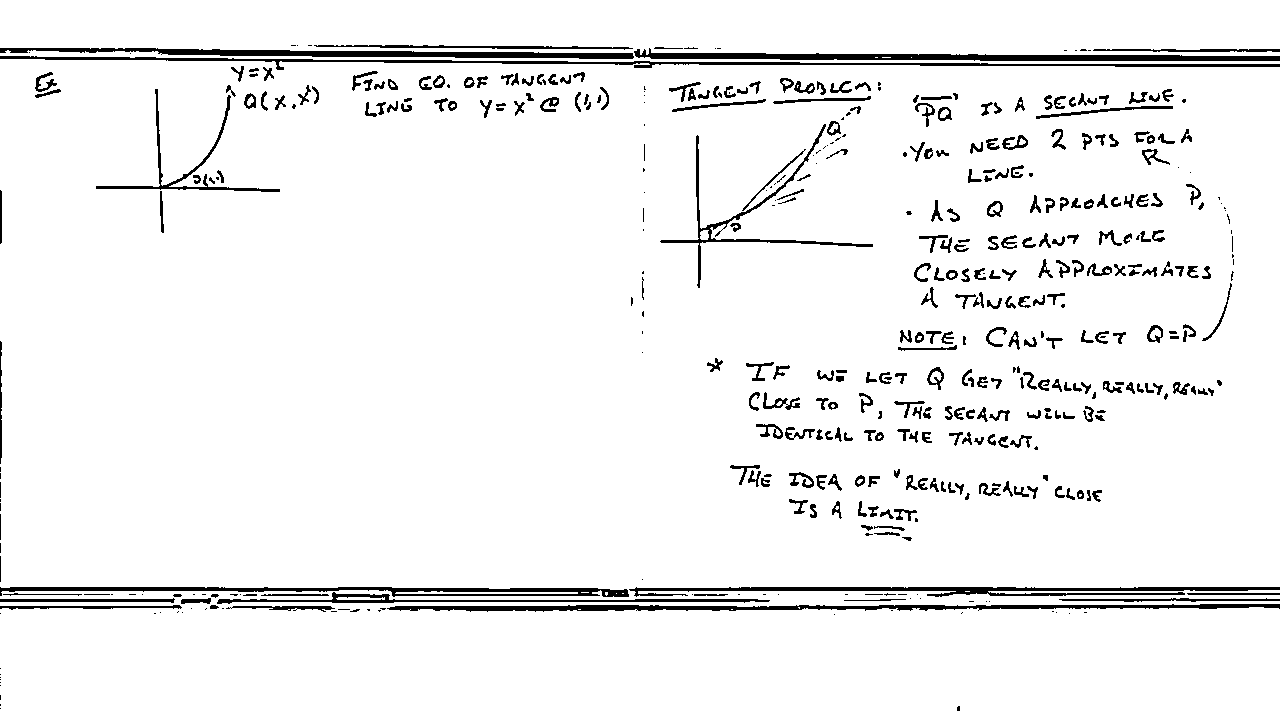 Ex
Y=X²
Q(X,X²)
P(1,1)
FIND EQ. OF TANGENT
LINE TO Y=X² @ (1,1)
TANGENT PROBLEM:
Q
P
"PQ" IS A SECANT LINE.
• YOU NEED 2 PTS FOR A
LINE.
• AS Q APPROACHES P,
THE SECANT MORE
CLOSELY APPROXIMATES
A TANGENT.
NOTE: CAN'T LET Q=P
* IF WE LET Q GET "REALLY, REALLY, REALLY"
CLOSE TO P, THE SECANT WILL BE
IDENTICAL TO THE TANGENT.
THE IDEA OF "REALLY, REALLY" CLOSE
IS A LIMIT.